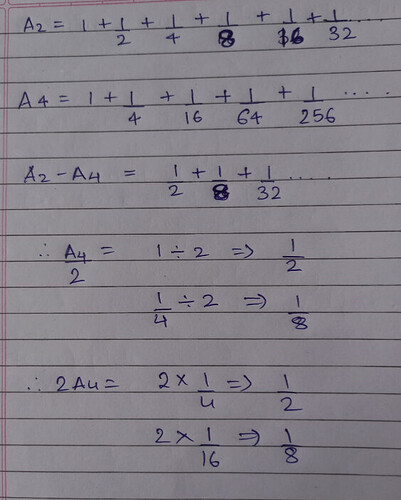 A2 = 1 + 1/2 + 1/4 + 1/8 + 1/16 + 1/32 .....
A4 = 1 + 1/4 + 1/16 + 1/64 + 1/256 ....
A2 - A4 = 1/2 + 1/8 + 1/32 .....
∴ A4/2 = 1 ÷ 2 => 1/2
1/4 ÷ 2 => 1/8
∴ 2A4 = 2 × 1/4 => 1/2
2 × 1/16 => 1/8